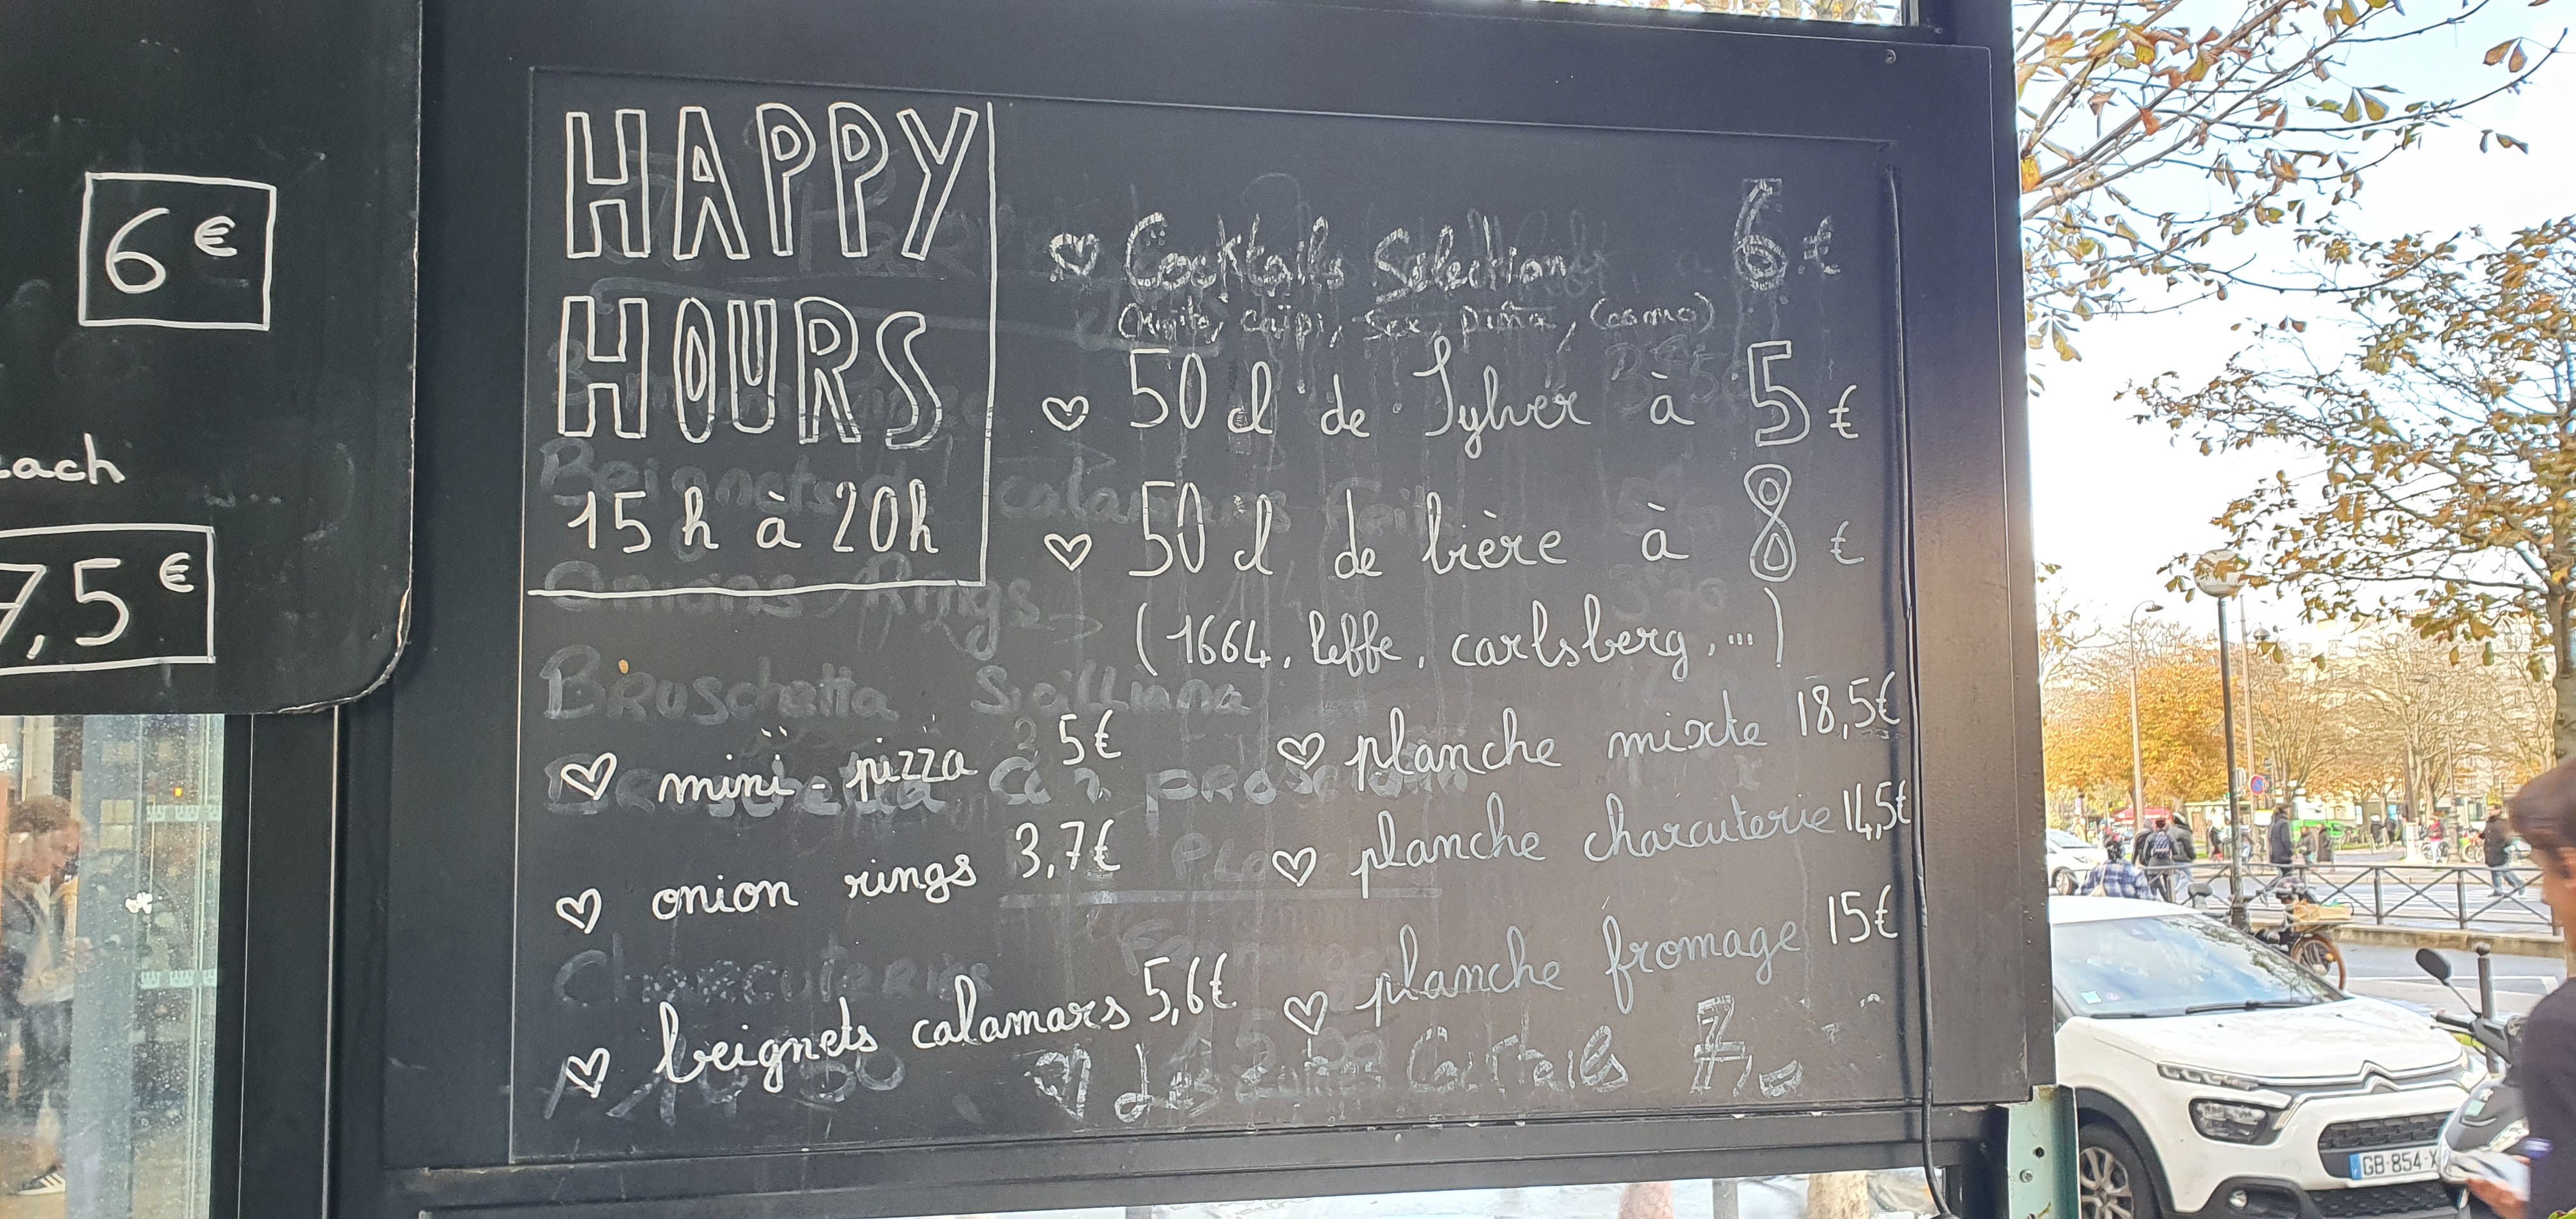 6 €
ach
7,5 €
HAPPY
HOURS
15 h à 20h
Cocktails Sélection 6 €
(Mojito, caïpi, Sex, piña, cosmo)
50 cl de Sylver à 5 €
50 cl de bière à 8 €
(1664, leffe, carlsberg, ...)
mini-pizza 5€
onion rings 3,7€
beignets calamars 5,6€
planche mixte 18,5€
planche charcuterie 14,5€
planche fromage 15€
Les autres Cocktails 7,
Beignets calamars
Onions Rings
Bruschetta Sicilliana
Charcuteries
GB-854-X